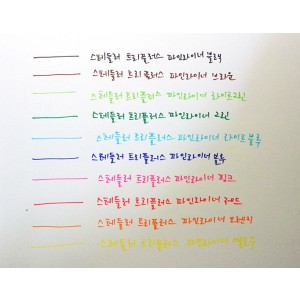 스테들러 트리플러스 파인라이너 블랙
스테들러 트리플러스 파인라이너 브라운
스테들러 트리플러스 파인라이너 라이트그린
스테들러 트리플러스 파인라이너 그린
스테들러 트리플러스 파인라이너 라이트블루
스테들러 트리플러스 파인라이너 블루
스테들러 트리플러스 파인라이너 핑크
스테들러 트리플러스 파인라이너 레드
스테들러 트리플러스 파인라이너 오렌지
스테들러 트리플러스 파인라이너 옐로우